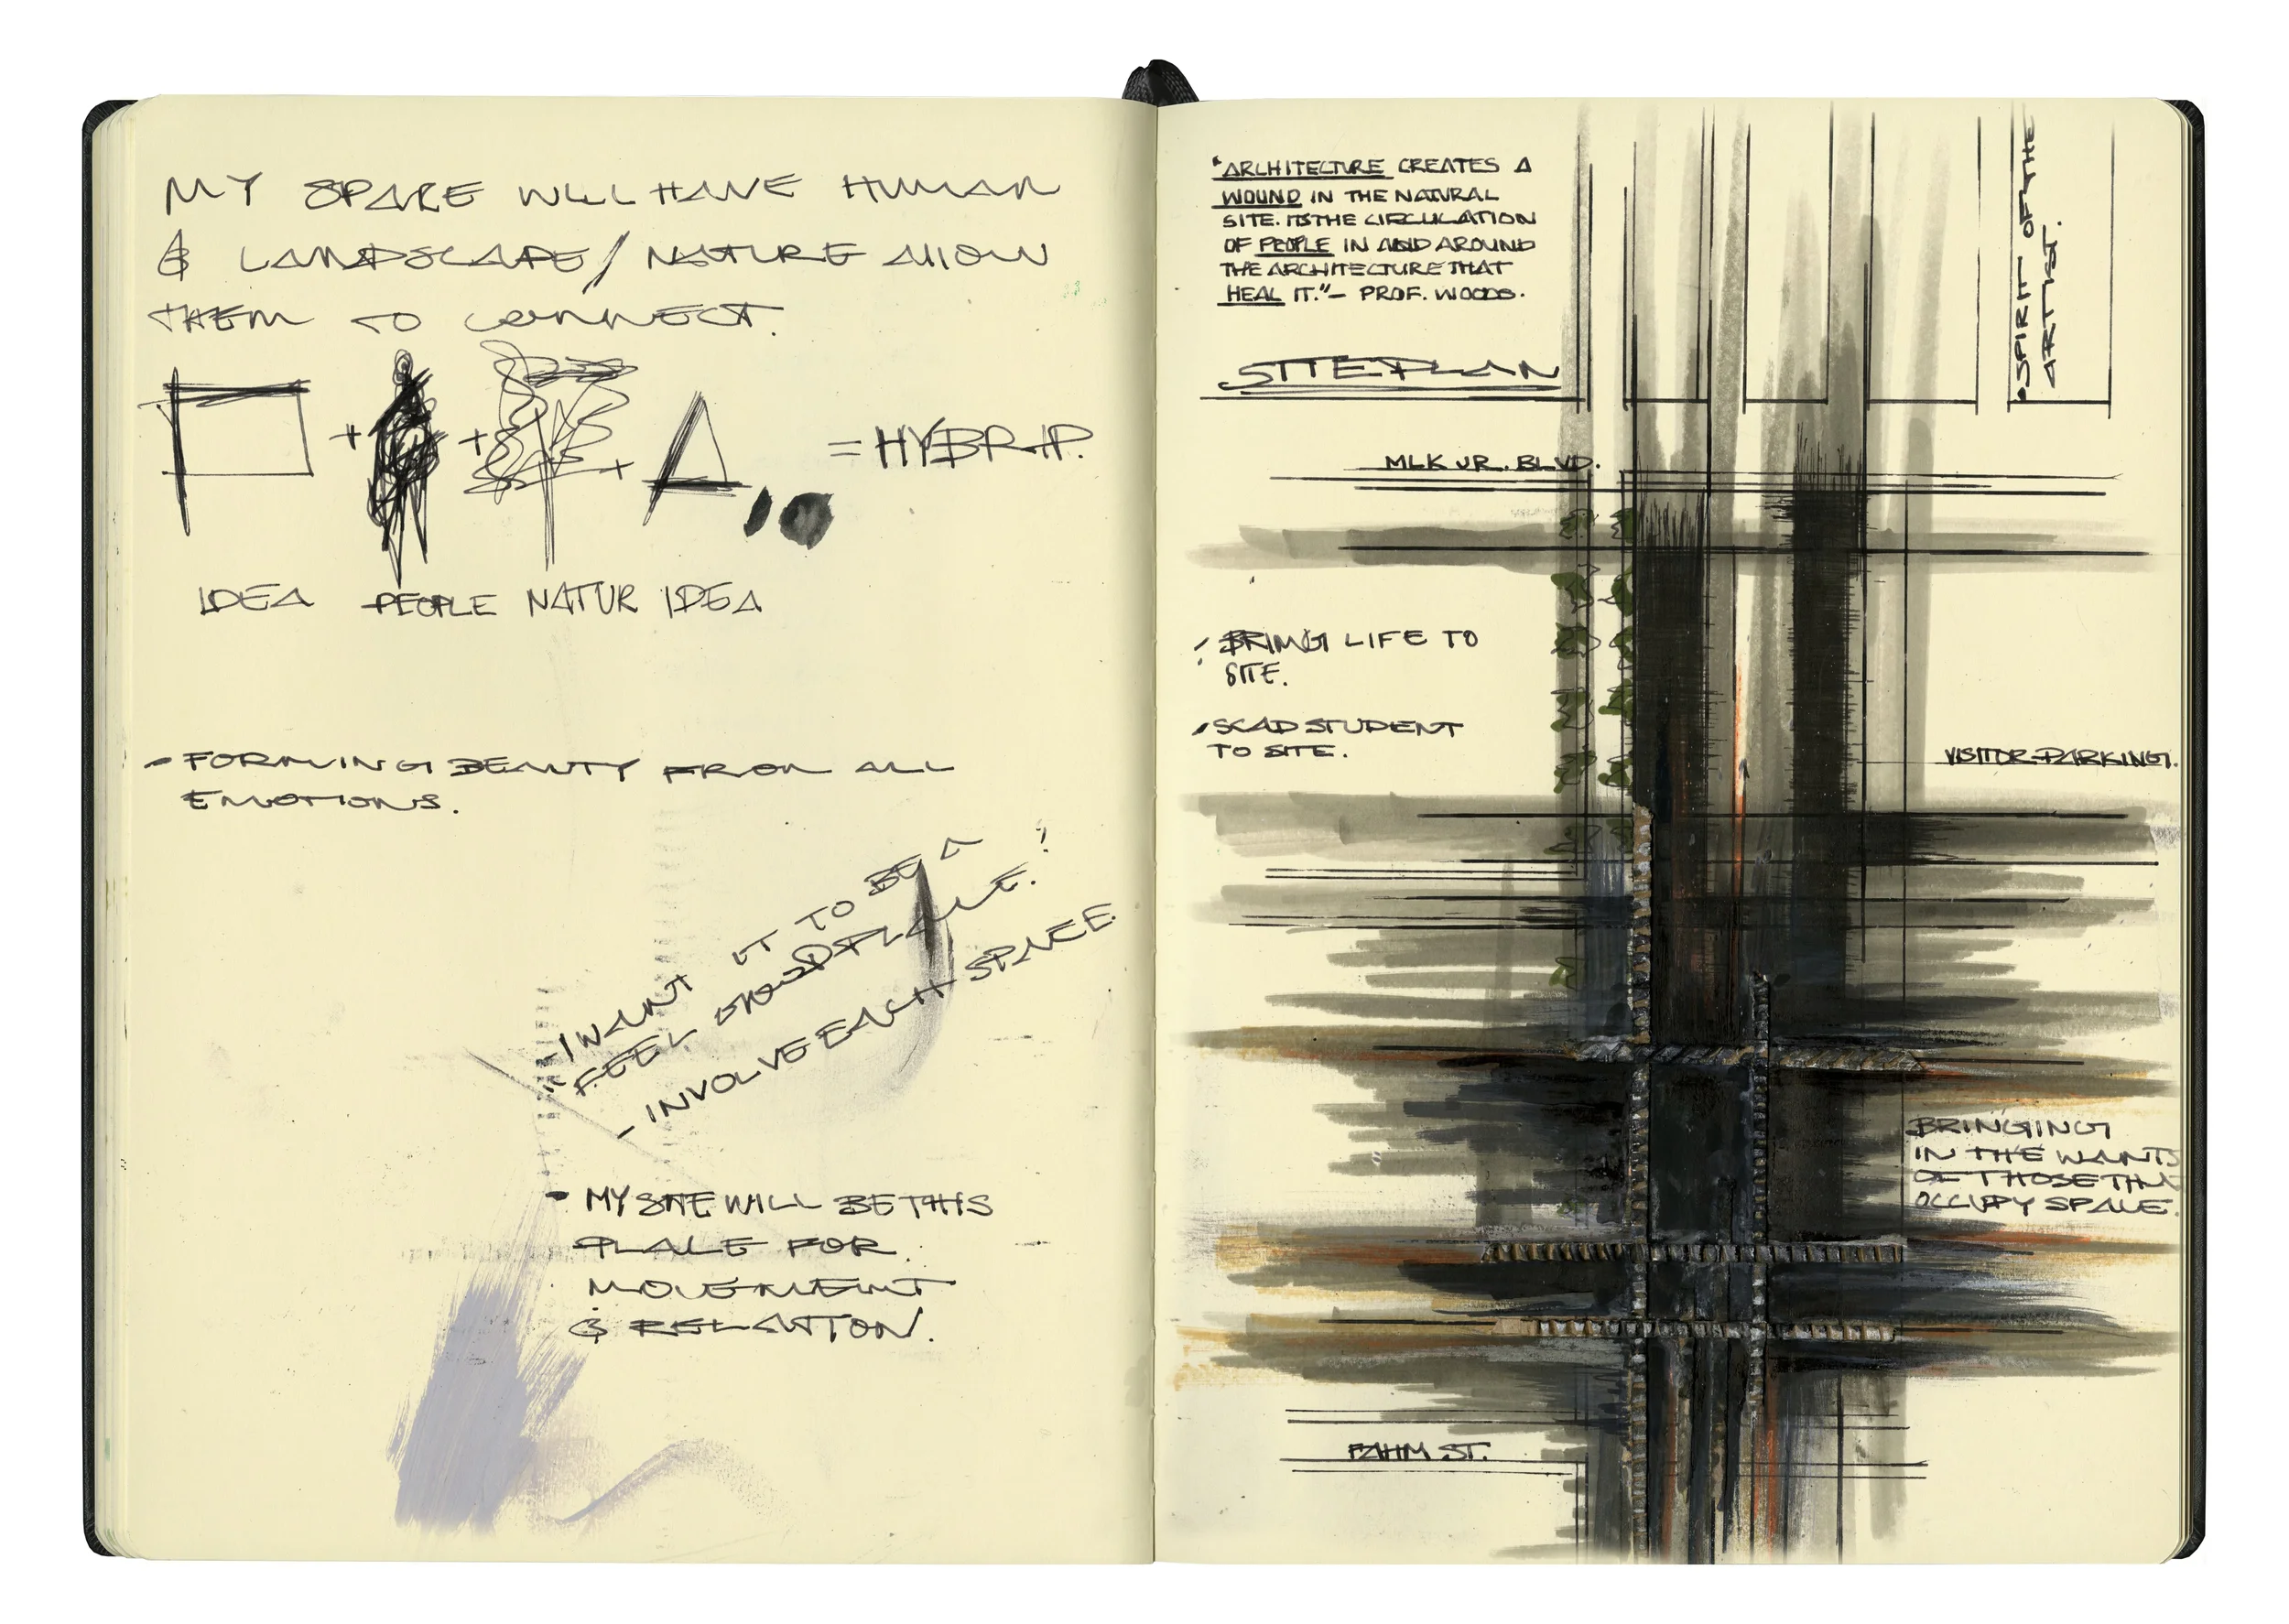 MY SPACE WILL HAVE HUMAN
& LANDSCAPE/NATURE ALLOW
THEM TO CONNECT.
+ + + = HYBRID.
IDEA PEOPLE NATUR IDEA
- FORMING BEAUTY FROM ALL
EMOTIONS.
- I WANT IT TO BE A
FEEL GOOD PLACE!
- INVOLVE EACH SPACE
• MY SITE WILL BE THIS
PLACE FOR
MOVEMENT
& RELATION.
"ARCHITECTURE CREATES A
WOUND IN THE NATURAL
SITE. ITS THE CIRCULATION
OF PEOPLE IN AND AROUND
THE ARCHITECTURE THAT
HEAL IT."- PROF. WOODS.
SITE PLAN
• SPIRIT OF THE
ARTIST.
MLK JR. BLVD.
BRING LIFE TO
SITE.
SCAD STUDENT
TO SITE.
VISITOR PARKING.
BRINGING
IN THE WANTS
OF THOSE
OCCUPY SPACE.
FAHM ST.